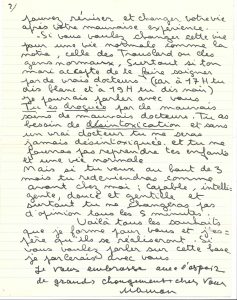 2/
pouvez réviser et changer votre vie
après cette mauvaise expérience.
Si vous voulez changer cette vie
pour une vie normale comme la
notre, celle des Travolta ou des
gens normaux, surtout si ton
mari accepte de te faire soigner
par de vrais docteurs (car à 17H tu
dis blanc et à 19H tu dis noir)
je pourrais parler avec vous
Tu es droguée par de mauvais
soins de mauvais docteurs. Tu as
besoin de désintoxication et sans
un vrai docteur tu ne seras
jamais désintoxiquée, et tu ne
pourras pas reprendre tes enfants
et une vie normale
Mais si tu veux au bout de 3
mois tu redeviendras comme
avant chez moi; capable, intelli-
gente, douce et gentille et
surtout tu ne changeras pas
d'opinion tous les 5 minutes.
Voilà tous les souhaits
que je forme pour vous et j'es-
père qu'ils se réaliseront. Si
vous voulez parler sur cette base
je parlerai avec vous
Je vous embrasse avec l'espoir
de grands changements chez vous
Maman